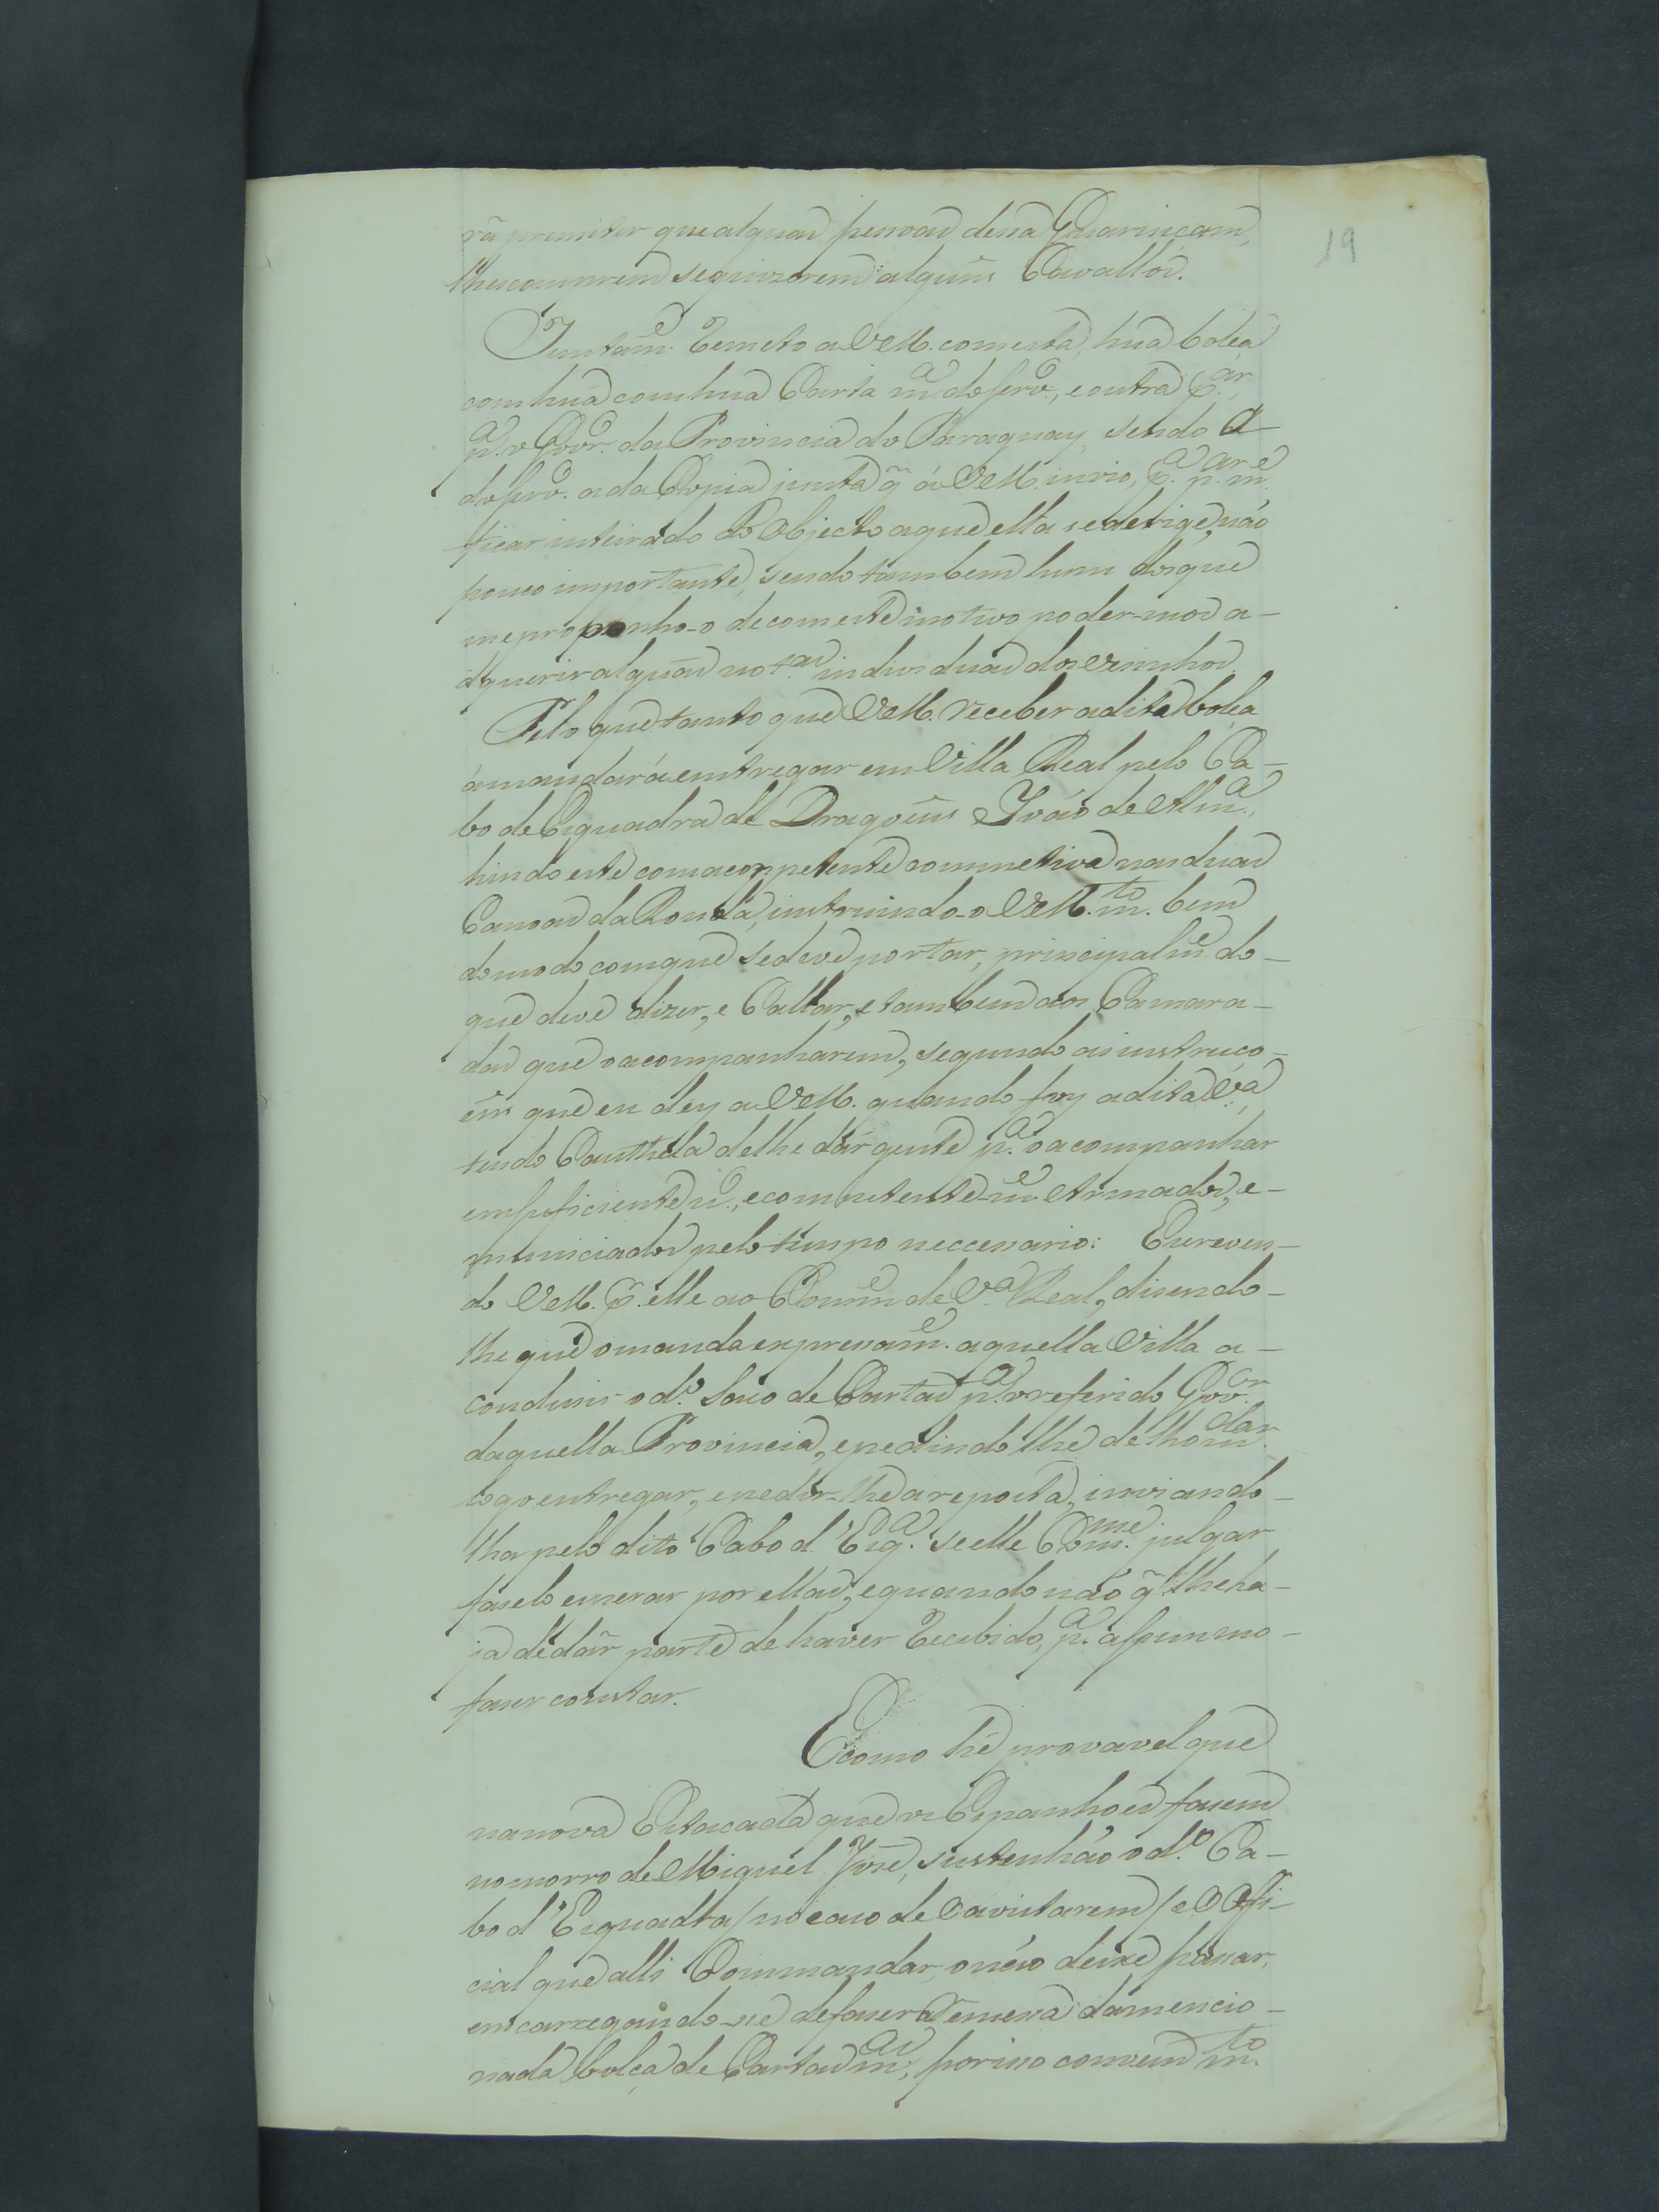 19
rá premiter que alguas pessoas dessa Guarniçam,
lhes comprem se quizerem alguns Cavallos.
Juntamᵉ Remeto a VM. com esta, hua bolça
com hua com hua Carta mª do servº., e outra pᵃʳ.,
pª. o Govᵒʳ. da Provincia do Paraguay, sendo a
do servº. a da Copia junta q̃ a VM. invio, pª. pᵃʳᵐᵉ
ficar inteirado do Objecto a que ella se derige, não
pouco importante, sendo tambem hum dos que
me proponho-o de com este motivo poder-mos a-
dquerir alguas notᵃˢ. individuas dos Vesinhos.
Pelo que tanto que VM. receber a dita bolça
a mandará emtregar em Villa Real pelo Ca-
bo de Esquadra de Dragoens João de Almᵃ.,
hindo este com a conpetente commetiva nas duas
Canoas da Ronda, instruindo-o VM. mᵗᵒ. bem
do modo com que se deve portar, principalmᵉ do-
que deve dizer, e Callar, e tambem aos Camara-
das que o acompanharem, segundo as instruço-
ens que eu dey a VM. quando foy a dita Vᵃ.,
tendo Cauthela de lhe dar gente pª. o acompanhar
em suficiente nº., e competente-mᵉ Armados, e-
municiados pelo tempo neccessario: Escreven-
do VM. p. elle ao Commᵉ de Vª. Real, disendo-
lhe que o manda expressamᵉ. a quella Villa a-
condusir o dº. Saco de Cartas pª. o referido Govᵒʳ.
daquella Provincia, e pedindo lhe de lho mᵈᵃʳ.
logo entregar, e pedir-lhe a reposta, inviando-
lha pelo dito Cabo d'Esqª. se elle Comᵐᵉ. julgar
fasелo esperar por ellas, e quando não q̃ lhe ha-
ja de dar parte de haver Recebido, pª. assim mo-
faser constar.
E como hé provavel que
na nova Estacada que os Espanhoes fasem
no morro de Miguel José, sustenhão o dº. Ca-
bo d'Esquadra / no caso de o avistarem / e o Ofi-
cial que alli Commandar, o não deixe passar,
emcarregando-se de faser a Remessa da mencio-
nada bolça de Cartas mᵃˢ; por isso convem mᵗᵒ.